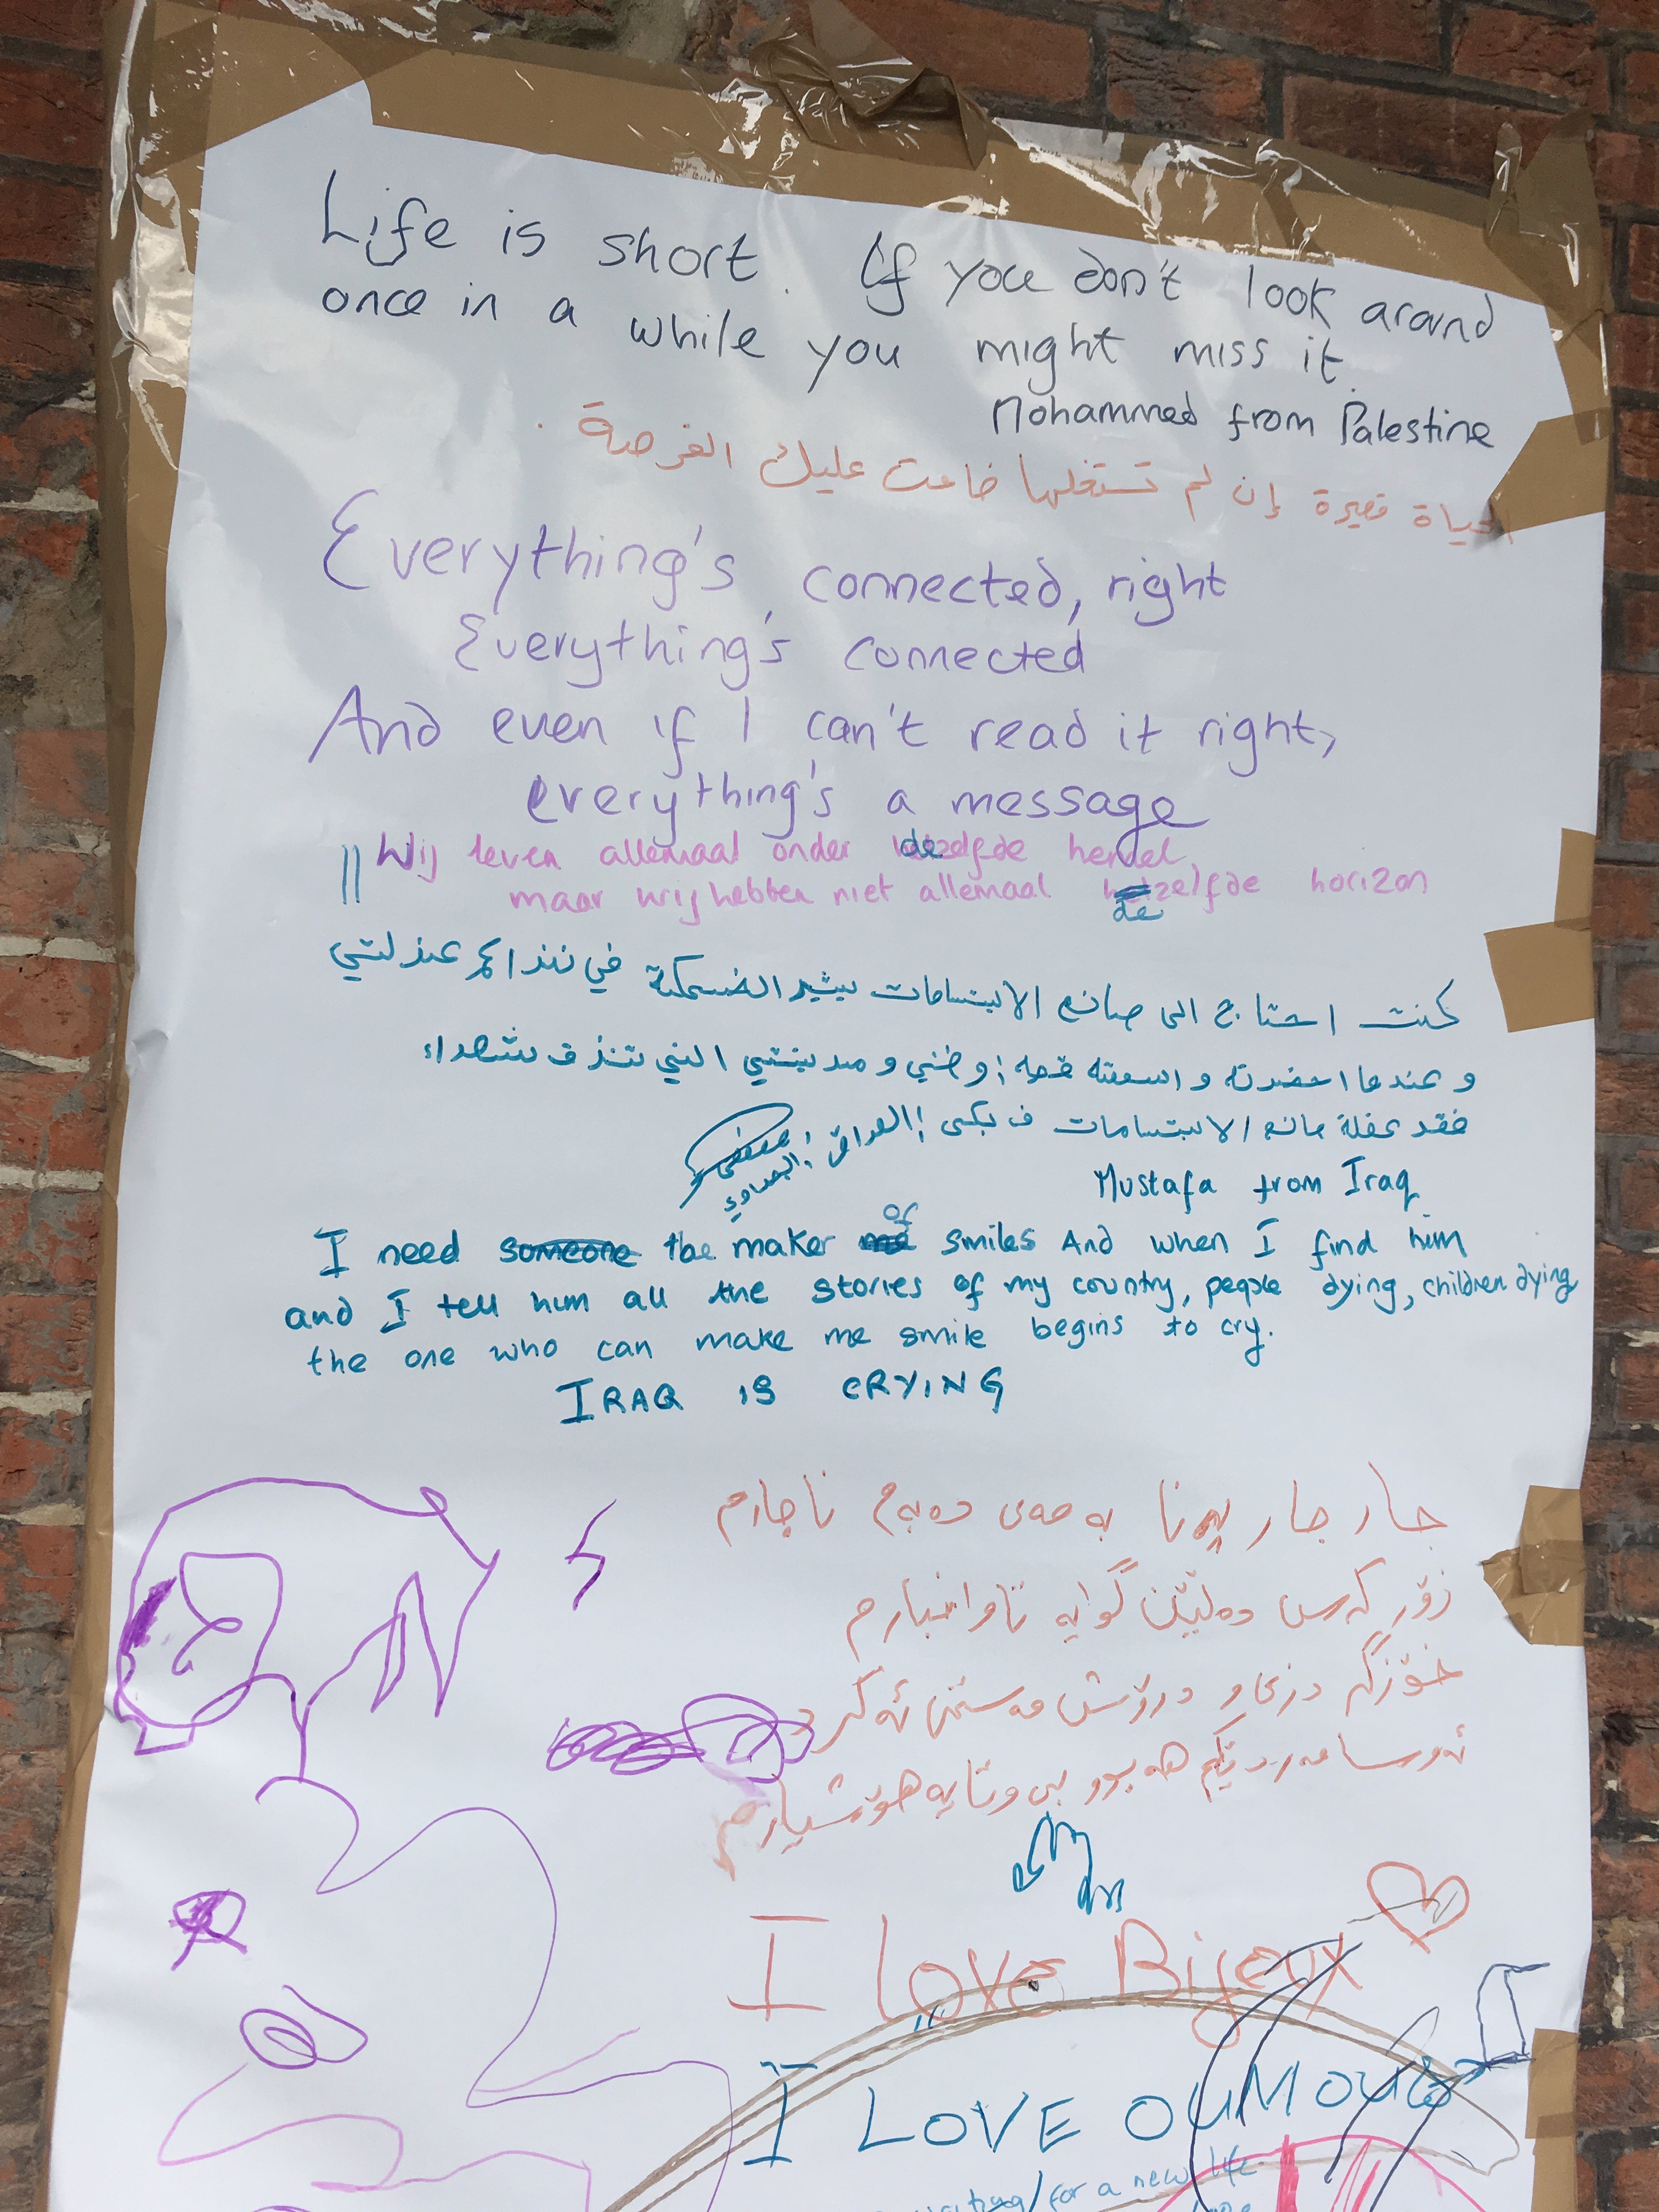 Life is short. If you don't look around
once in a while you might miss it.
Mohammed from Palestine
الحياة قصيرة إن لم تستغلها ضاعت عليك الفرصة .
Everything's connected, right
Everything's connected
And even if I can't read it right,
everything's a message
Wij leven allemaal onder dezelfde hemel,
maar wij hebben niet allemaal dezelfde horizon
كنت احتاج الى صانع الابتسامات يثير الضحكة في
وعندما احضرته و اسمعته قصه وطني و مدينتي التي تنزف شهداء
فقد عقلة صانع الابتسامات ف بكى العراق
Mustafa from Iraq
I need someone the maker of smiles And when I find him
and I tell him all the stories of my country, people dying, children dying
the one who can make me smile begins to cry.
IRAQ IS CRYING
جار جار پەنا بە مەی دەبەم ناچارم
زۆر کەس دەڵێن گوایە تاوانبارم
خۆزگە دزی و درۆش مەستی ئەکرد
ئەوسا بوو بی وتایە هۆشیارم
I love Bijeux
I LOVE OUMOU
for a new life